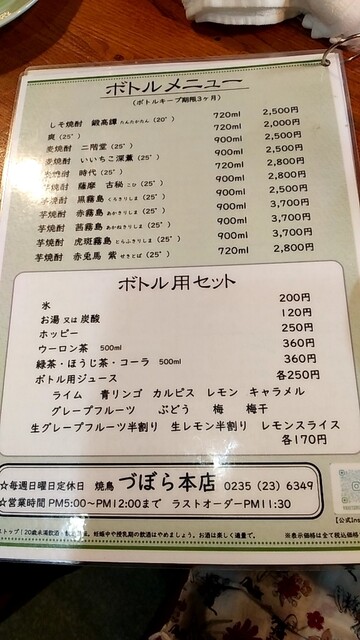 ボトルメニュー
(ボトルキープ期限3ヶ月)
しそ焼酎 鍛高譚 たんたかたん (20°) 720ml 2,500円
爽 (25°) 720ml 2,000円
麦焼酎 二階堂 (25°) 900ml 2,500円
麦焼酎 いいちこ深薫 (25°) 900ml 2,500円
焼酎 時代 (25°) 720ml 2,800円
芋焼酎 薩摩 古秘 こひ (25°) 900ml 2,800円
芋焼酎 黒霧島 くろきりしま (25°) 900ml 2,500円
芋焼酎 赤霧島 あかきりしま (25°) 900ml 3,700円
芋焼酎 茜霧島 あかねきりしま (25°) 900ml 3,700円
芋焼酎 虎斑霧島 とらふきりしま (25°) 900ml 3,700円
芋焼酎 赤兎馬 紫 せきとば (25°) 720ml 2,800円
ボトル用セット
氷 200円
お湯 又は 炭酸 120円
ホッピー 250円
ウーロン茶 500ml 360円
緑茶・ほうじ茶・コーラ 500ml 360円
ボトル用ジュース 各250円
ライム 青リンゴ カルピス レモン キャラメル
グレープフルーツ ぶどう 梅 梅干
生グレープフルーツ半割り 生レモン半割り レモンスライス
各170円
☆毎週日曜日定休日 焼鳥 づぼら本店 0235 (23) 6349
☆営業時間 PM5:00〜PM12:00まで ラストオーダーPM11:30
ストップ!20歳未満飲酒・ 妊娠中や授乳期の飲酒はやめましょう。お酒は楽しく適量で。 ※表示価格は全て税込価格
【公式Ins